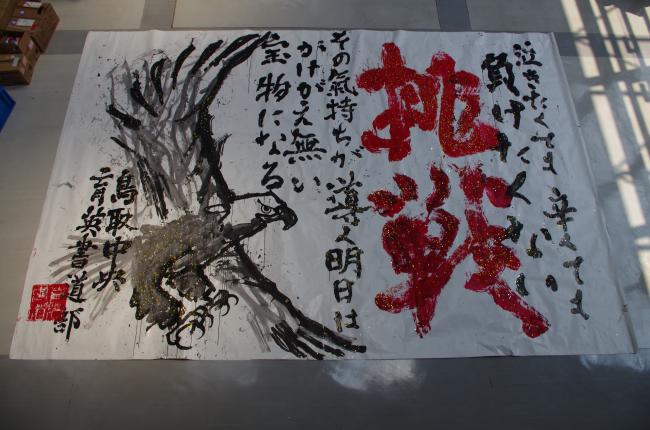 泣きたくても 辛くても
負けたくない
挑戦
その気持ちが 導く明日は
かけがえ無い
宝物になる
鳥取中央
育英書道部